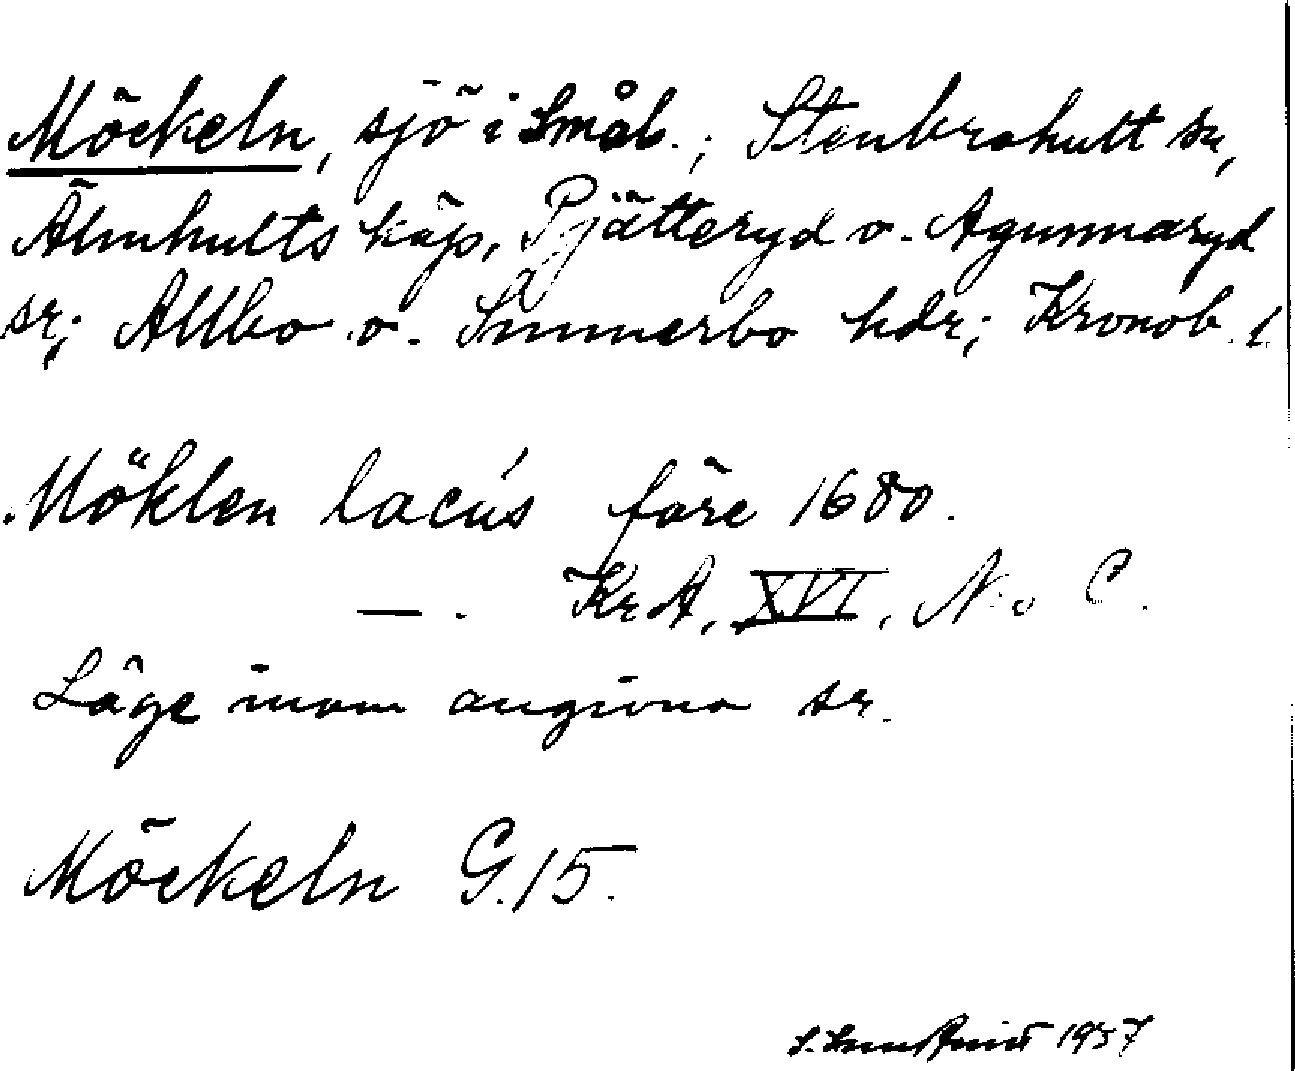 Möckeln, sjö i Smål.; Stenbrohult sn,
Älmhults köp, Pjätteryd o. Agunnaryd
sr; Allbo o. Sunnerbo hdr; Kronob. l.
Möklen lacus före 1680.
— . KrA, XVI, No C.
Läge inom angivna sr.
Möckeln G.15.
1957